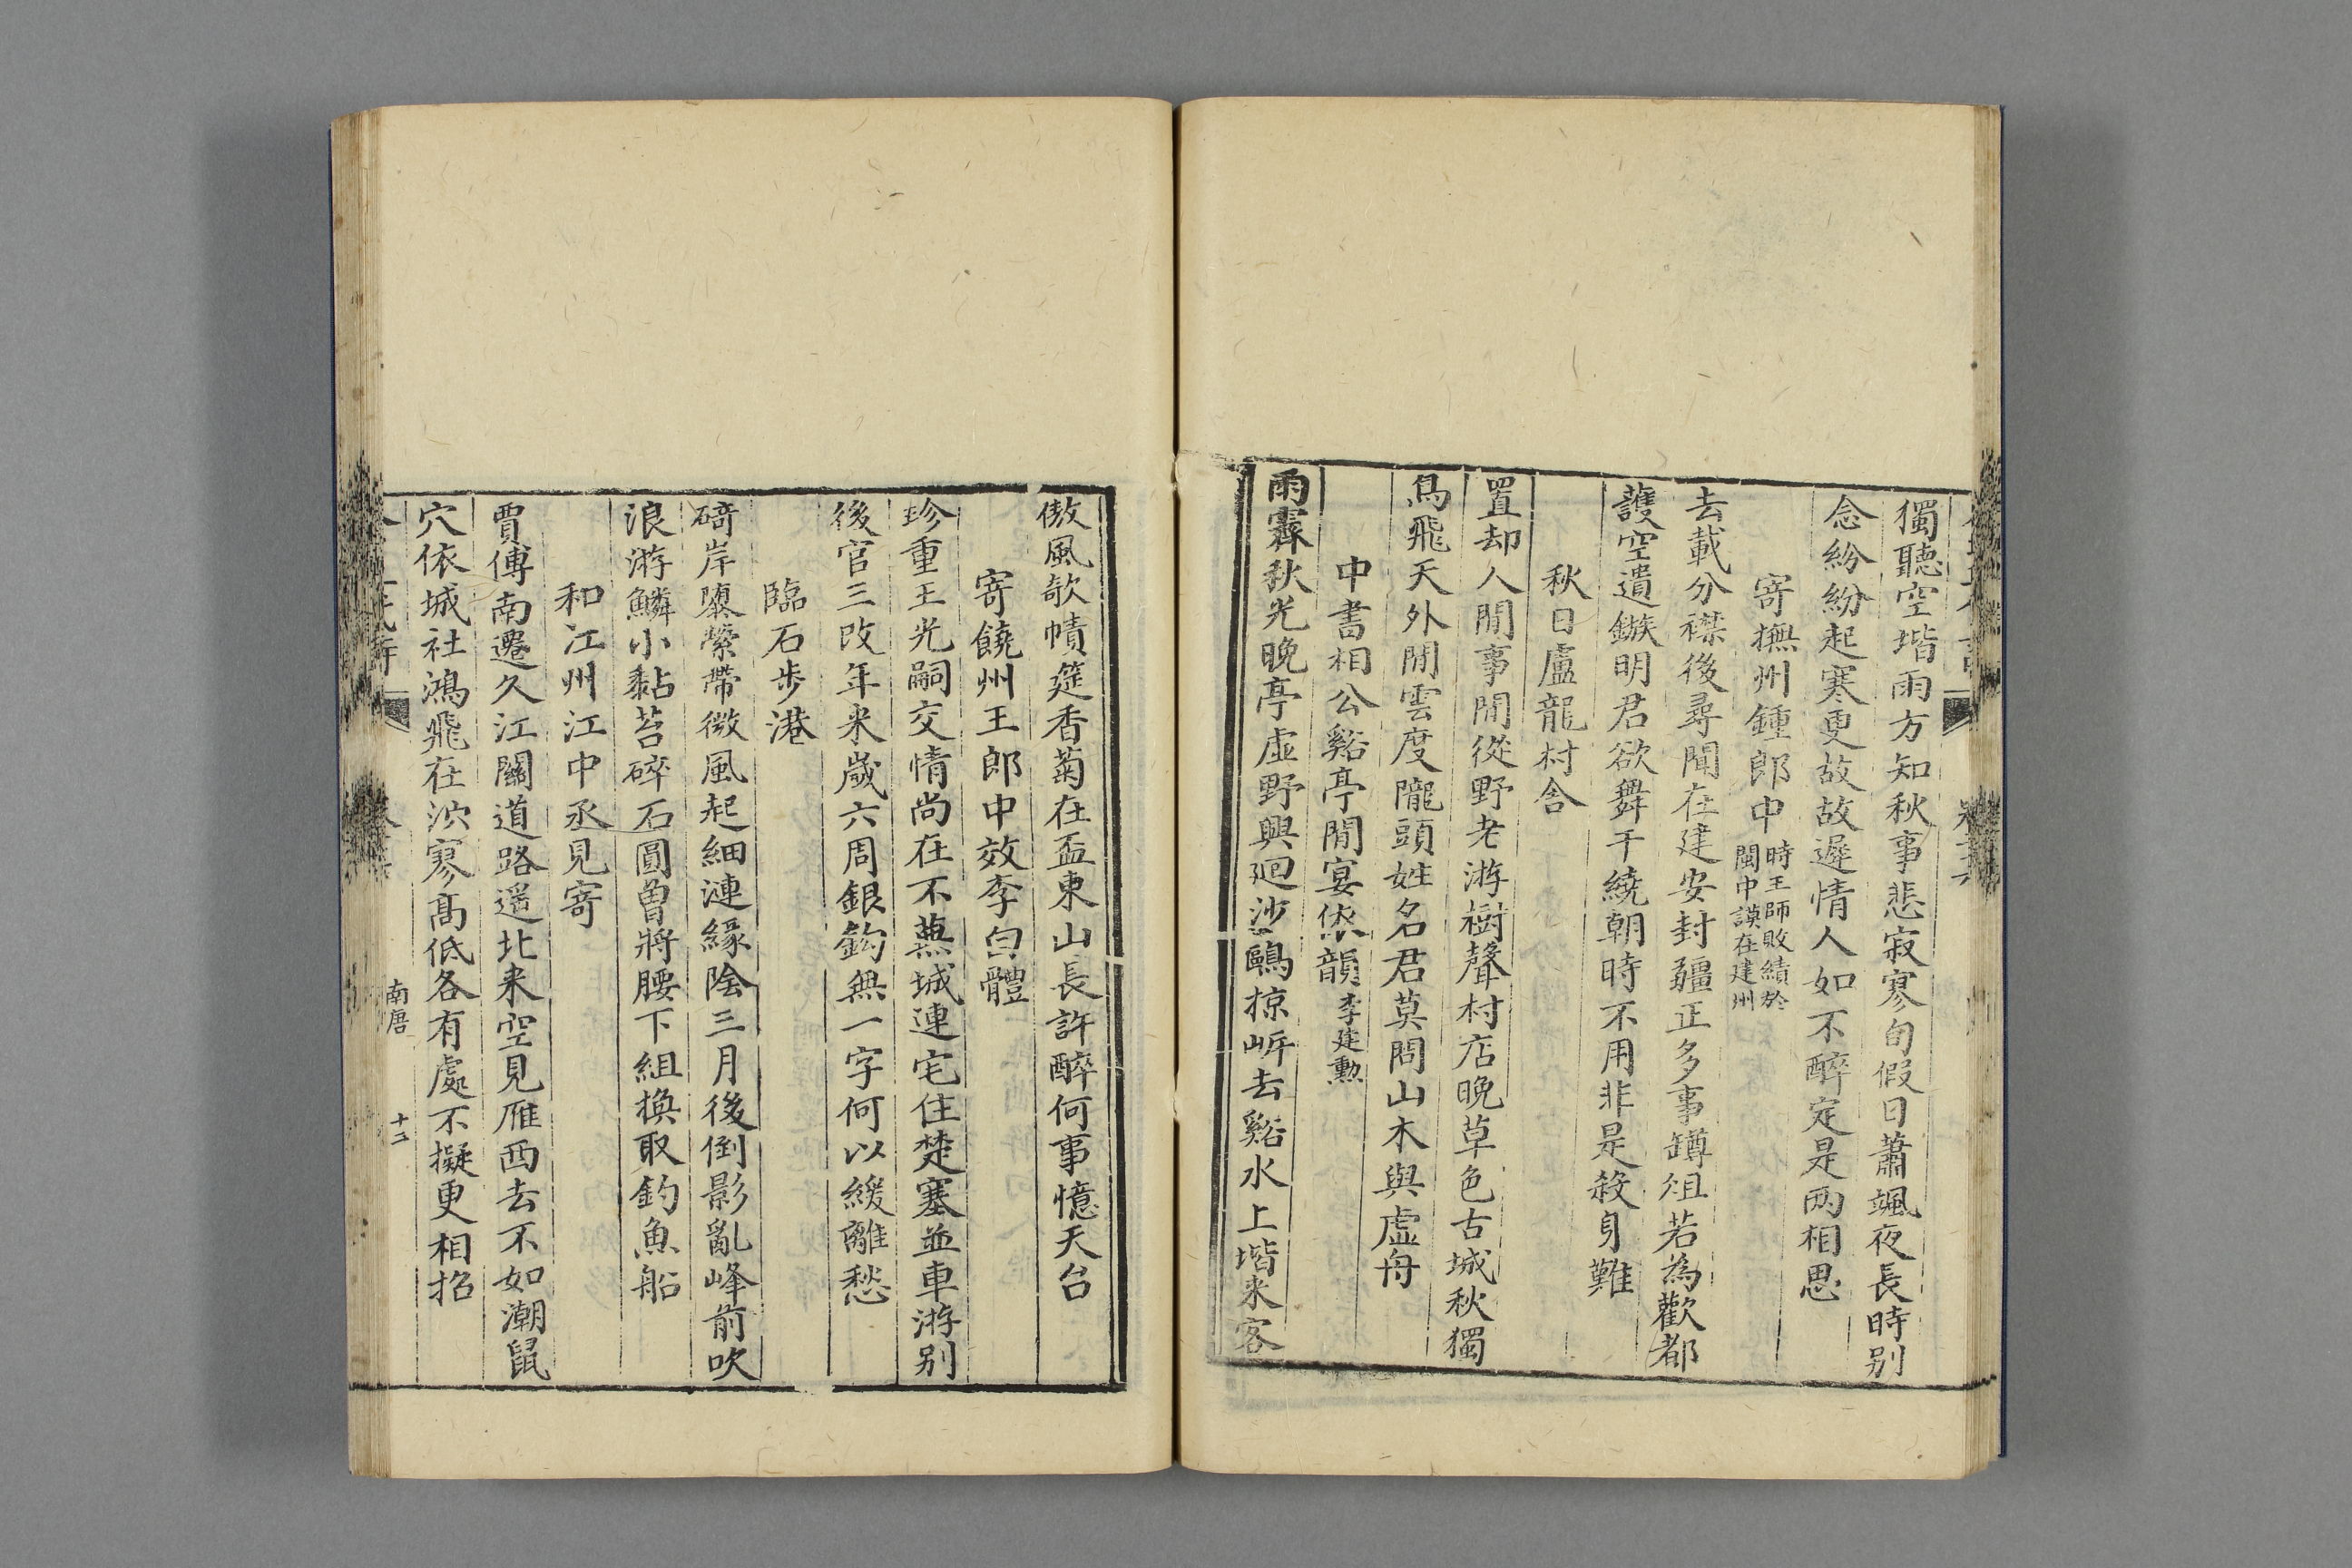 獨聽空堦雨方知秋事悲寂寥旬假日蕭颯夜長時别
念紛紛起寒更故故遲情人如不醉定是两相思
寄撫州鍾郎中時王師敗績於閩中謨在建州
去載分襟後尋聞在建安封疆正多事罇俎若為歡都
護空遺鏃明君欲舞干繞朝時不用非是殺身難
秋日盧龍村舍
置却人間事閒從野老游樹聲村店晚草色古城秋獨
鳥飛天外閒雲度隴頭姓名君莫問山木與虛舟
中書相公谿亭閒宴依韻李建勳
雨霽秋光晚亭虛野興廻沙鷗掠岍去谿水上堦来客
傲風欹幘筵香菊在盃東山長許醉何事憶天台
寄饒州王郎中效李白體
珍重王光嗣交情尚在不蕪城連宅住楚塞並車游别
後官三改年来歲六周銀鈎無一字何以緩離愁
臨石步港
碕岸隳縈帶微風起細漣緣陰三月後倒影亂峰前吹
浪游鱗小黏苔碎石圓曾將腰下組換取釣魚船
和江州江中丞見寄
賈傅南遷久江關道路遥北来空見雁西去不如潮鼠
穴依城社鴻飛在泬寥髙低各有處不擬更相招
南唐
十二